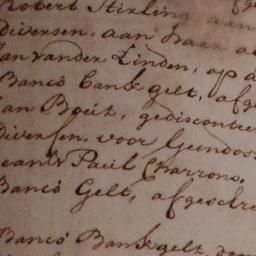 Robert Stirling aan
Diversen, aan haar
Jan vander Linden, op
Banco bank gelt, afge
Jan Boeit, gediscontee
Diversen, voor
Jean & Paul Charrons,
Banco Gelt, afgeschre
Banco Bankgelt, den